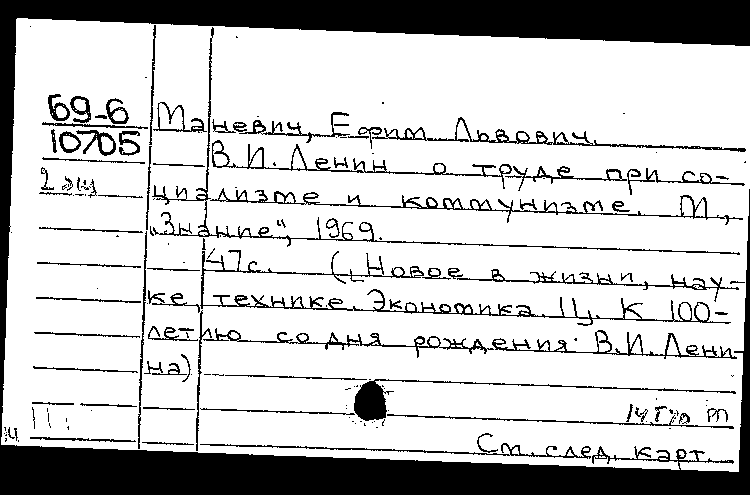 69-6
10705
2 экз
Маневич, Ефим Львович.
В.И. Ленин о труде при со-
циализме и коммунизме. М.,
„Знание“, 1969.
47с. (Новое в жизни, нау-
ке, технике. Экономика. 11). К 100-
летию со дня рождения В.И. Лени-
на)
См. след. карт.